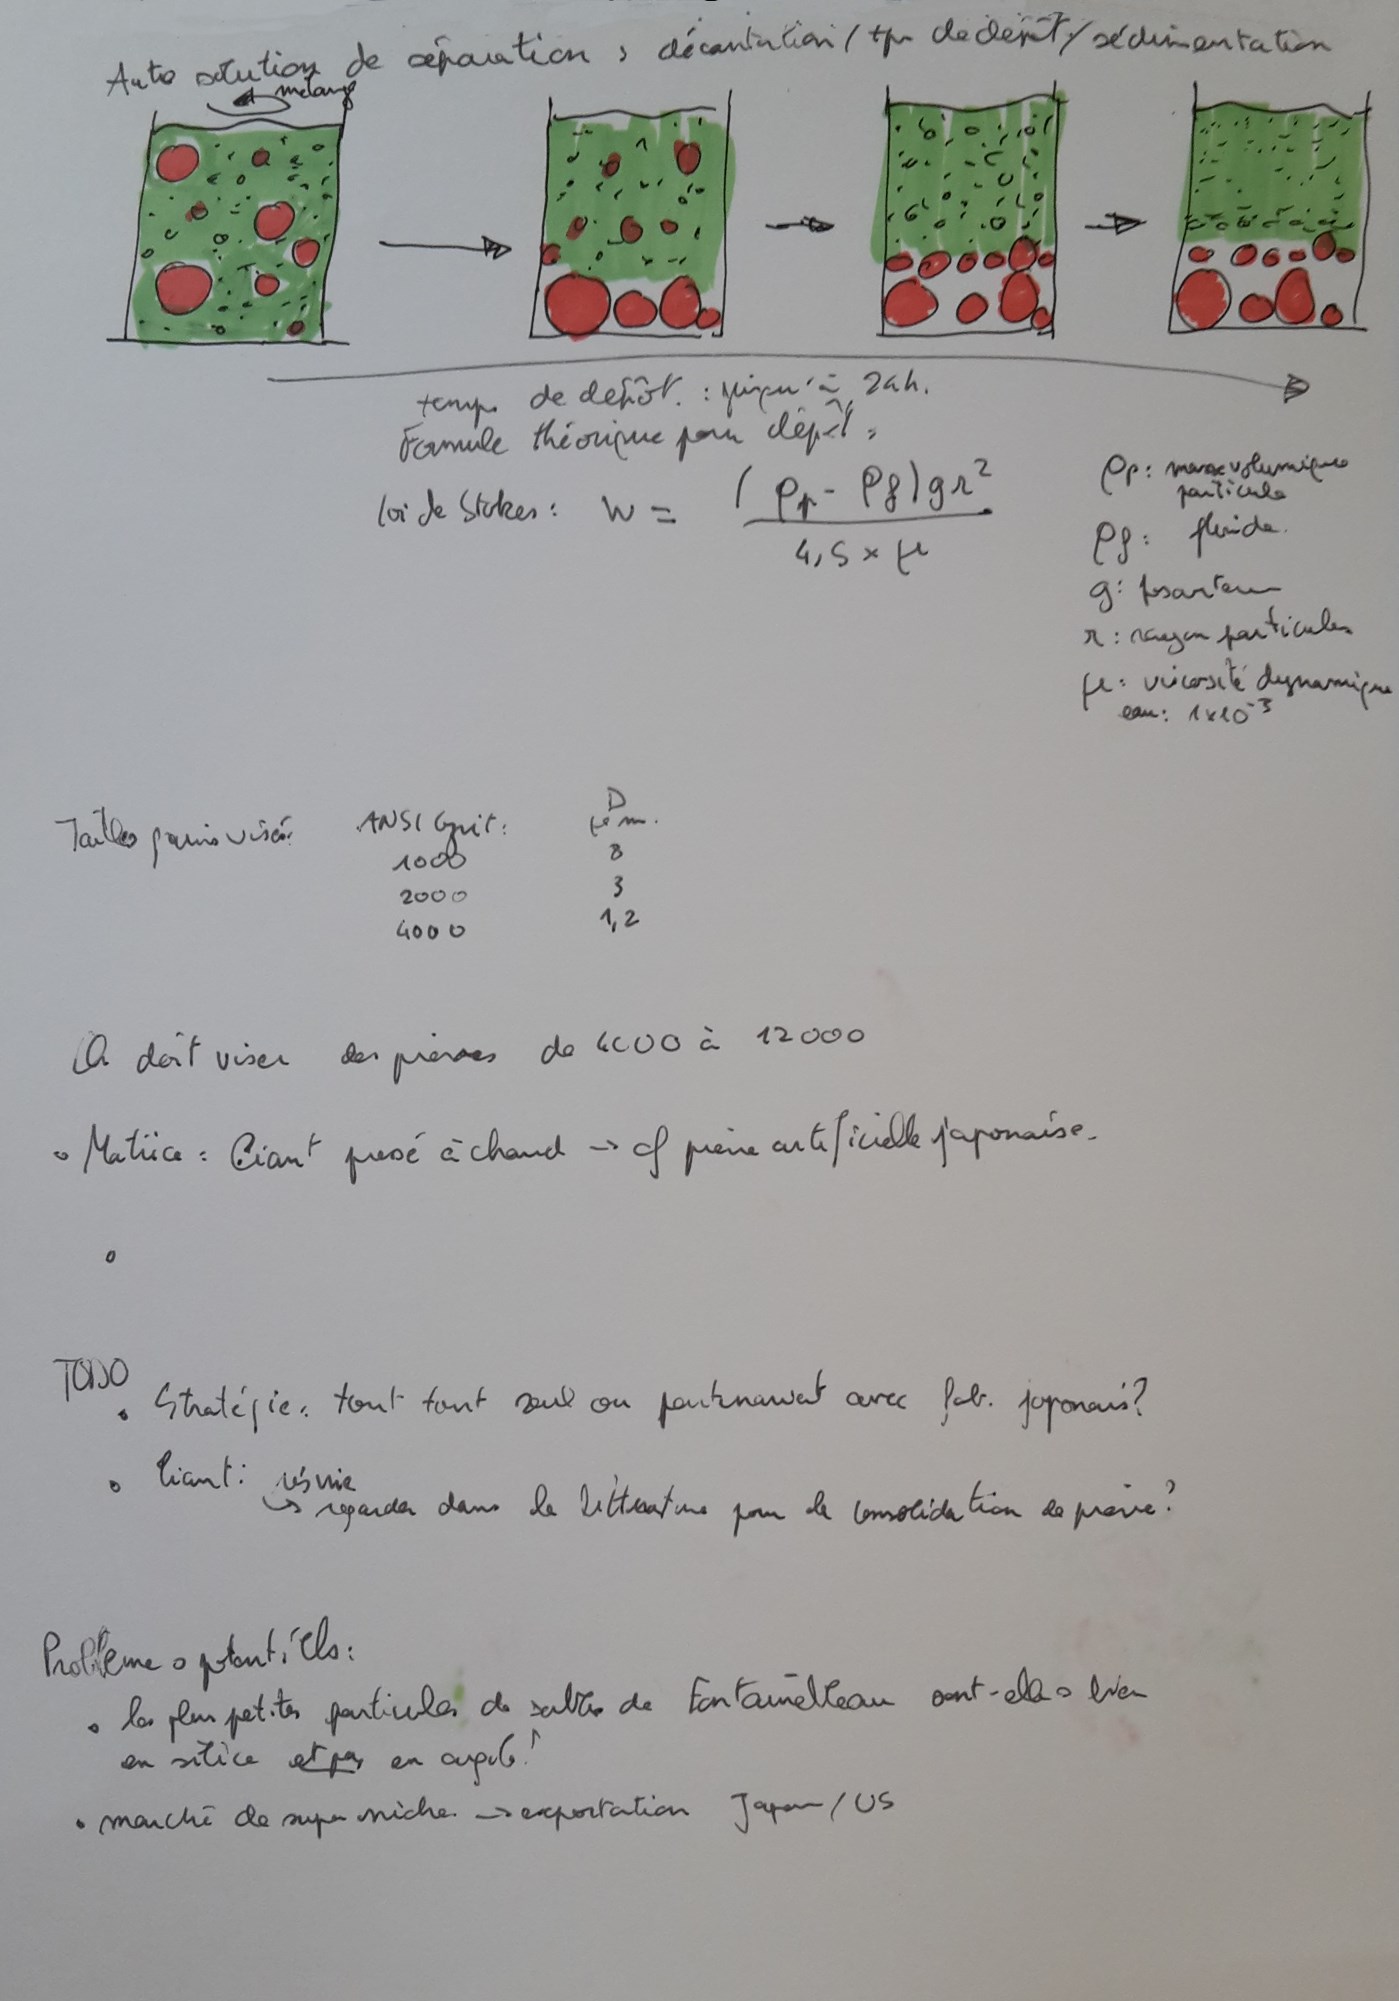 Autre solution de séparation : décantation / tps de dépôt / sédimentation
mélange
temps de dépôt : jusqu'à 24h.
Formule théorique pour dépôt :
Loi de Stokes : W = (ρp - ρf) g r² / 4,5 × μ
ρp : masse volumique
particule
ρf : fluide.
g : pesanteur
r : rayon particules
μ : viscosité dynamique
eau : 1x10⁻³
Tailles grains visés : ANSI Grit : D μm.
1000 8
2000 3
4000 1,2
On doit viser des pierres de 4000 à 12000
• Matrice : Liant pressé à chaud → cf pierre artificielle japonaise.
•
TODO
• Stratégie : tout tout seul ou partenariat avec fab. japonais ?
• Liant : résine
↳ regarder dans la littérature pour la consolidation de pierre ?
Problèmes potentiels :
• les plus petites particules de sables de Fontainebleau sont-elles bien
en silice et pas en argile !
• marché de super niche → exportation Japon / US